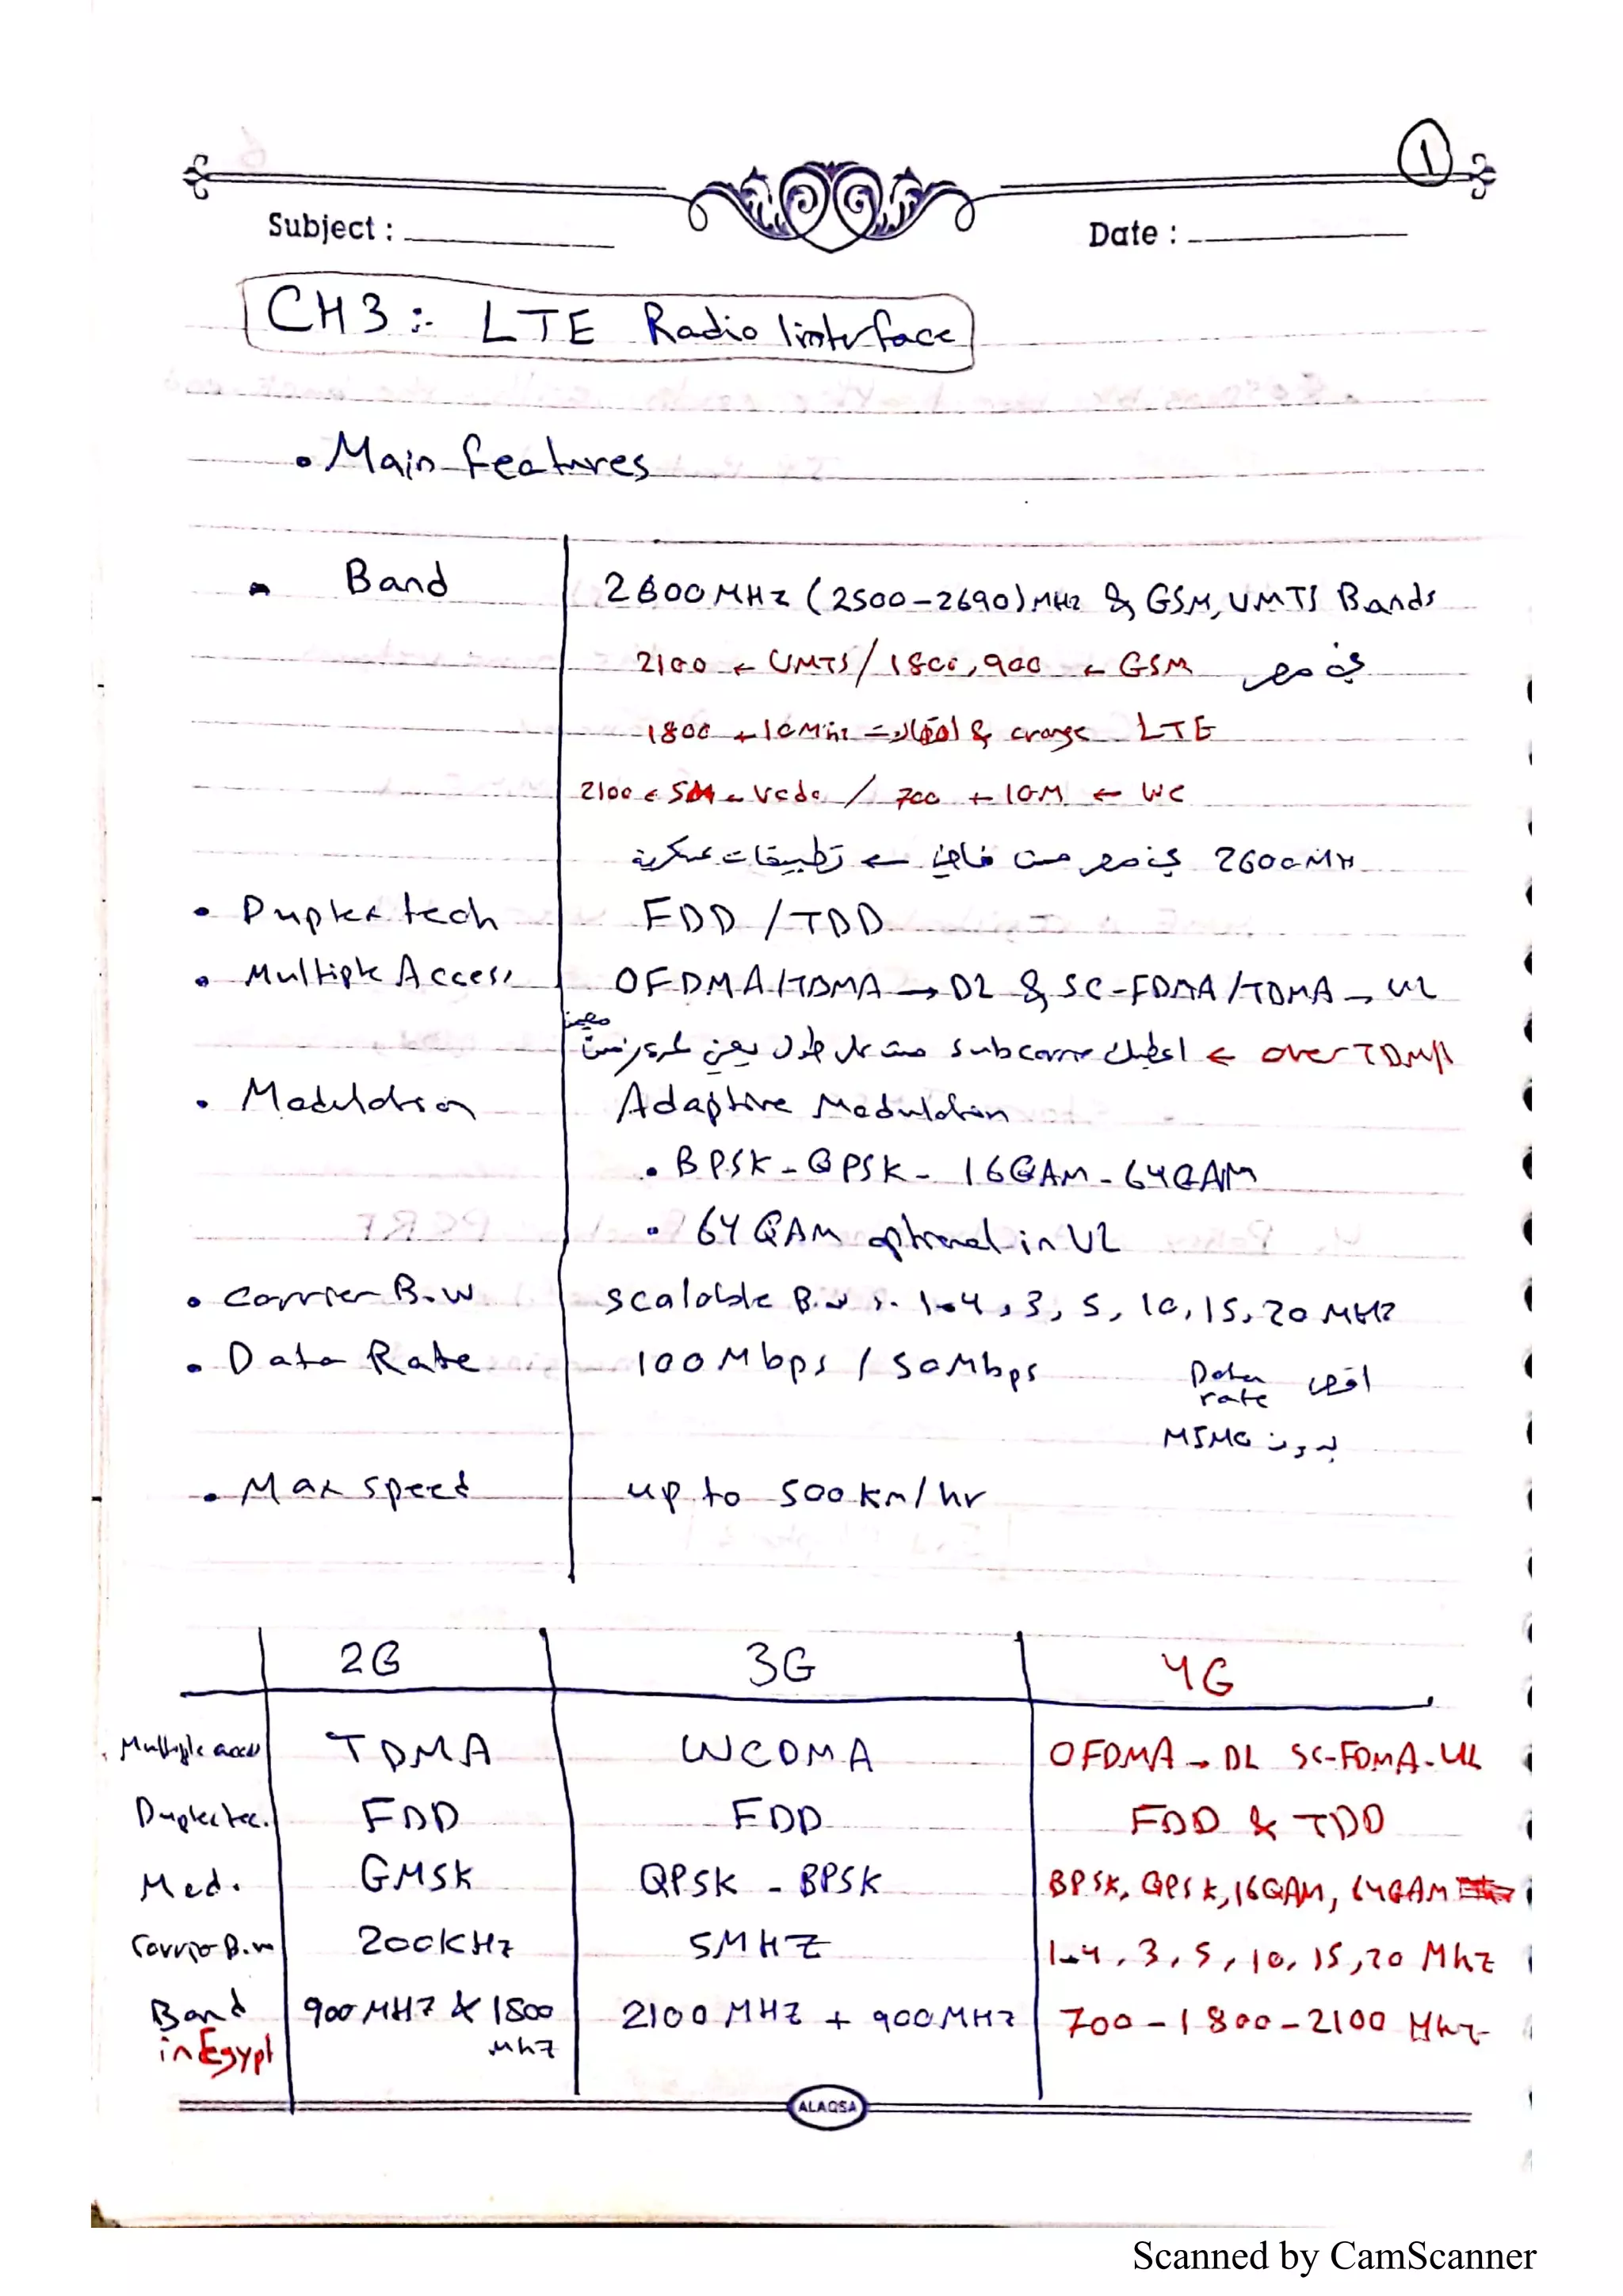 1
Subject :
Date :
CH3 :- LTE Radio Iinterface
• Main features
• Band
2600 MHz (2500-2690) MHz & GSM, UMTS Bands
2100 ← UMTS / 1800, 900 ← GSM في مصر
1800 ← 10 MHz ← اتصالات & orange LTE
2100 ← 5M ← Voda / 700 ← 10M ← WE
2600 MH في مصر مش فاضي ← تطبيقات عسكرية
• Duplex tech
FDD / TDD
• Multiple Access
OFDMA/TDMA → DL & SC-FDMA/TDMA → UL
over TDMA ← اعطيك subcarrier مش على طول يعني لفترة زمن
معين
• Modulation
Adaptive Modulation
• BPSK - QPSK - 16QAM - 64QAM
• 64 QAM optional in UL
• Carrier B.W
scalable B.w :- 1.4, 3, 5, 10, 15, 20 MHz
• Data Rate
100 Mbps / 50 Mbps
اقصى Data rate
بدون MIMO
• Max speed
up to 500 km/hr
2G 3G 4G
Multiple access TDMA WCDMA OFDMA → DL SC-FDMA - UL
Duplex tec. FDD FDD FDD & TDD
Mod. GMSK QPSK - BPSK BPSK, QPSK, 16QAM, 64QAM
Carrier B.w 200KHz 5MHZ 1.4, 3, 5, 10, 15, 20 Mhz
Band in Egypt 900 MHZ & 1800 Mhz 2100 MHZ + 900 MHZ 700 - 1800 - 2100 Mhz
ALAQSA
Scanned by CamScanner